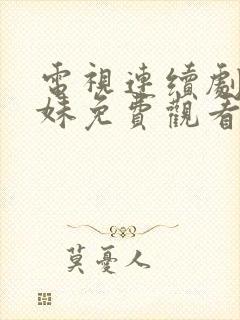 電視連續劇
妹免費觀看
莫憂人